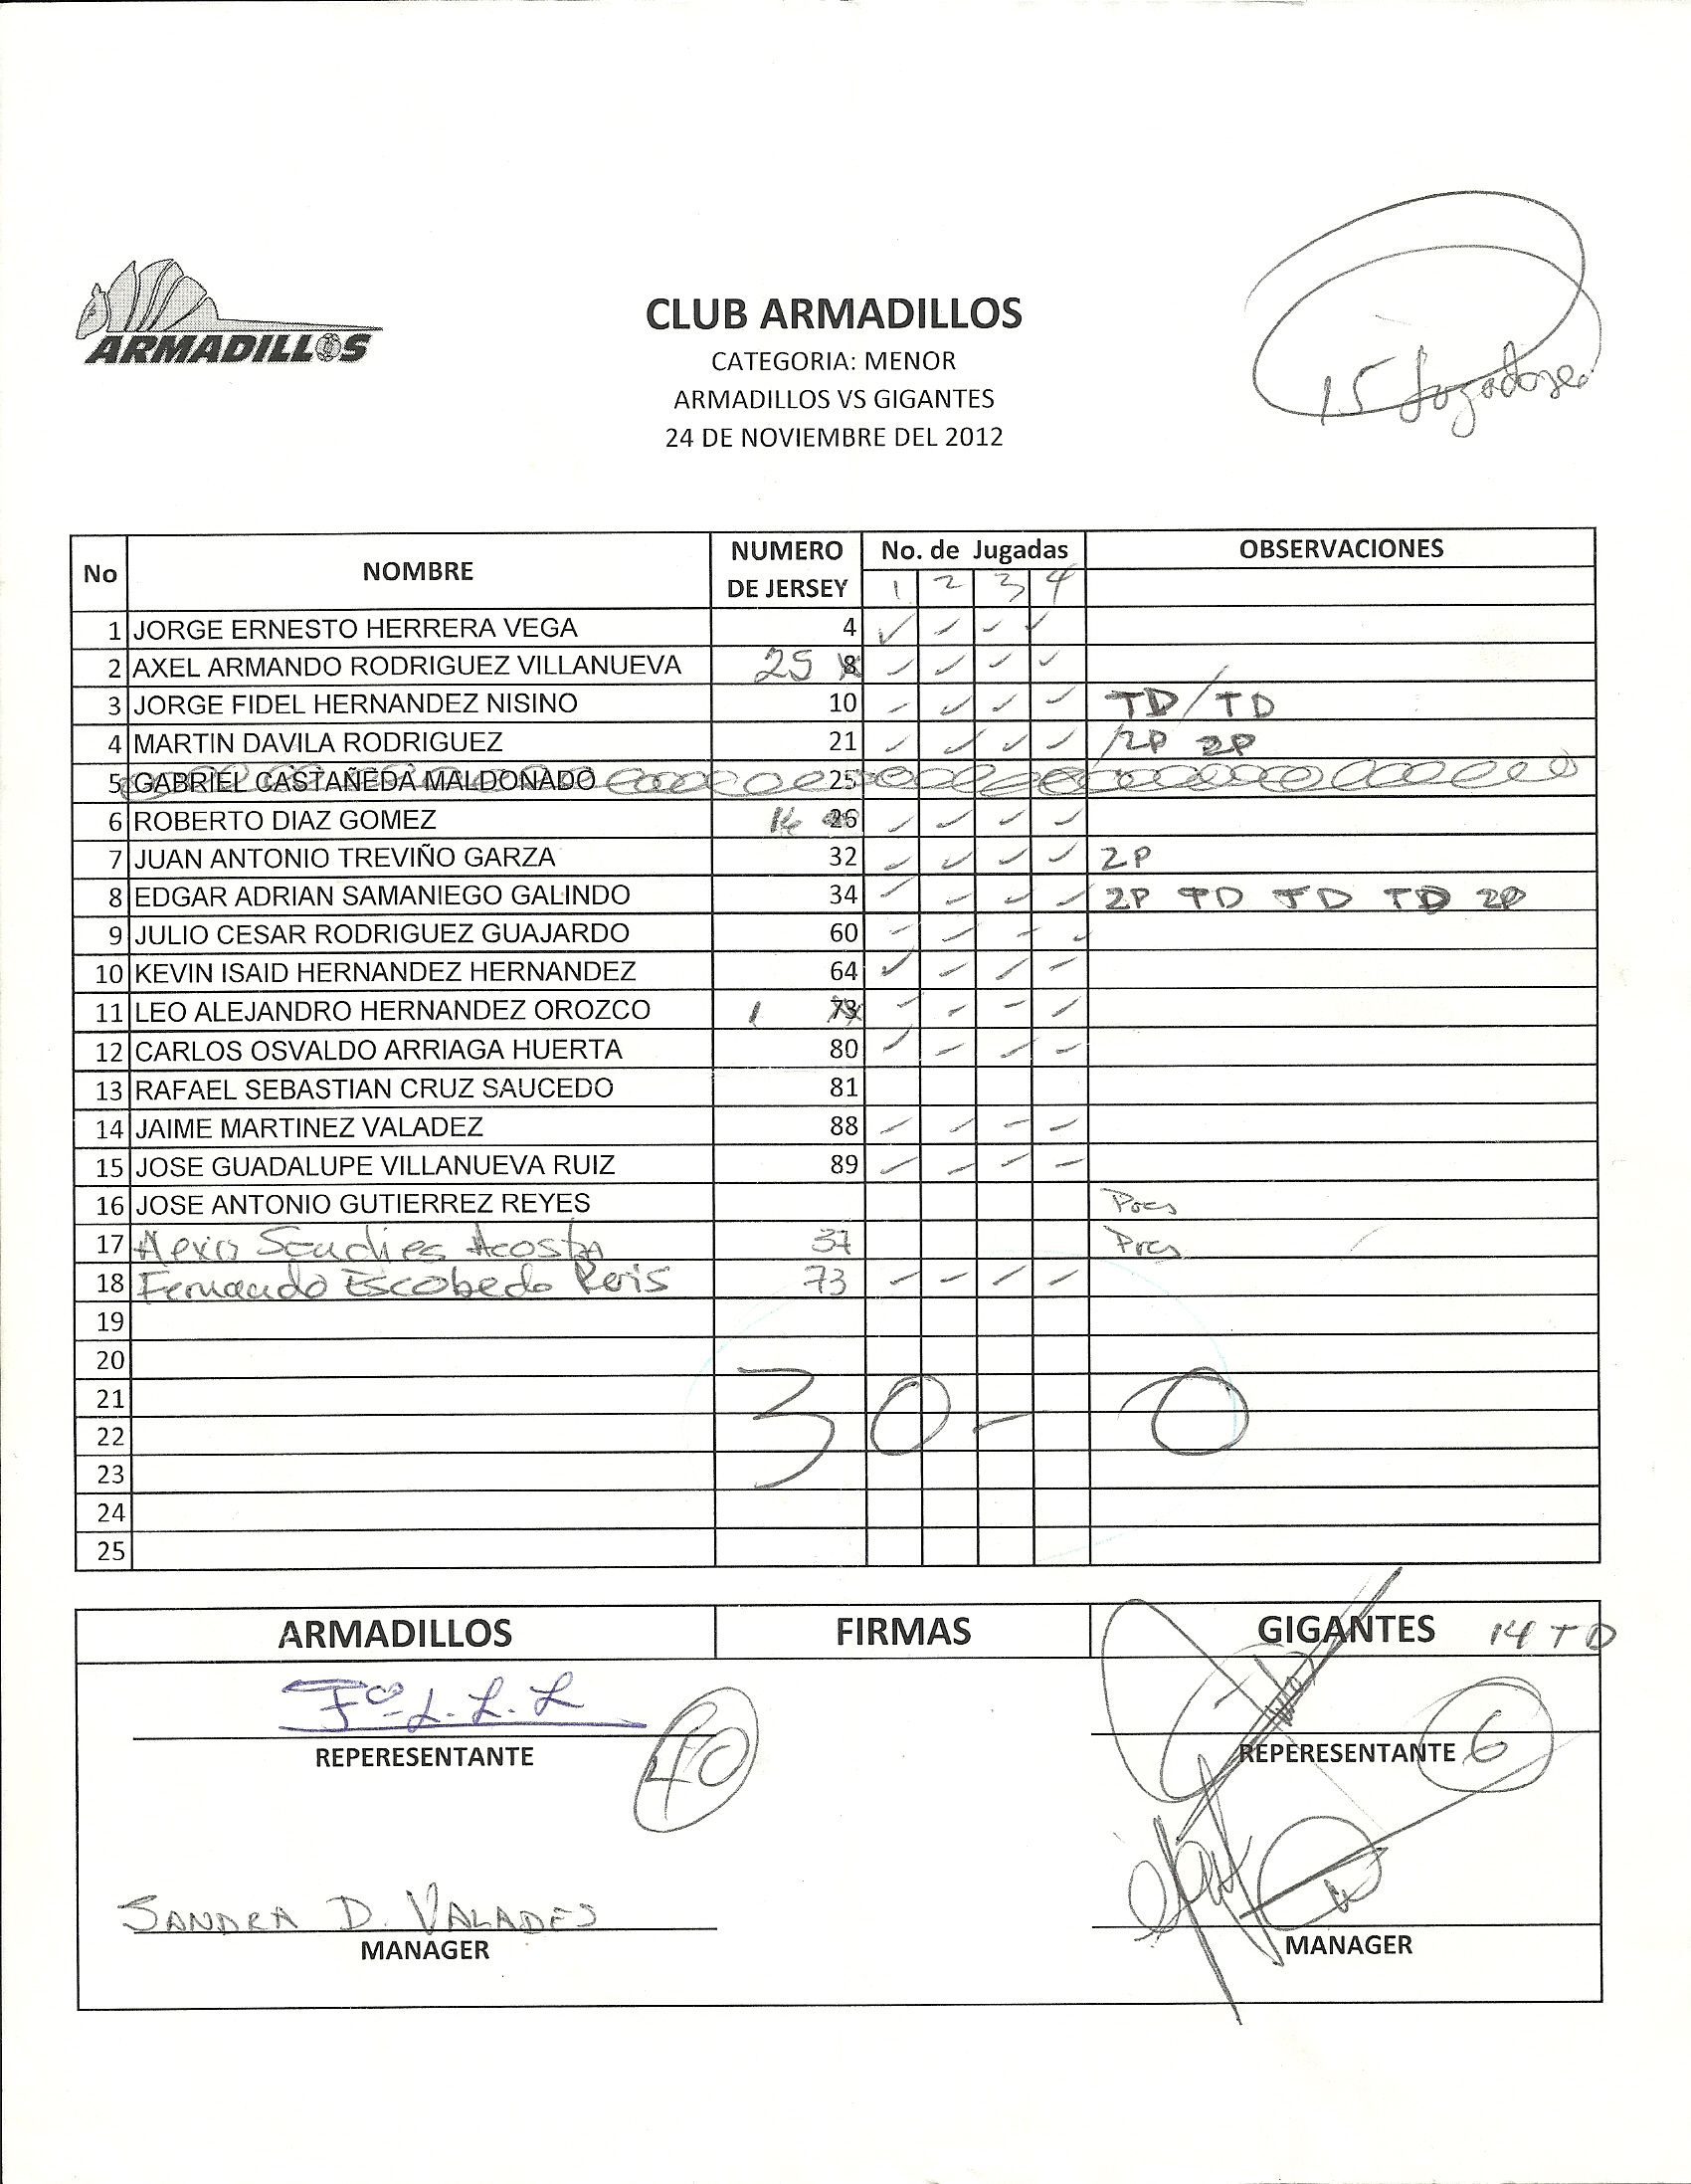 ARMADILLOS
CLUB ARMADILLOS
CATEGORIA: MENOR
ARMADILLOS VS GIGANTES
24 DE NOVIEMBRE DEL 2012
15 Jugadores
No NOMBRE NUMERO DE JERSEY No. de Jugadas OBSERVACIONES
1 2 3 4
1 JORGE ERNESTO HERRERA VEGA 4 ✓ ✓ ✓ ✓
2 AXEL ARMANDO RODRIGUEZ VILLANUEVA 25 8 ✓ ✓ ✓ ✓
3 JORGE FIDEL HERNANDEZ NISINO 10 ✓ ✓ ✓ ✓ TD / TD
4 MARTIN DAVILA RODRIGUEZ 21 ✓ ✓ ✓ ✓ /2P 2P
5 GABRIEL CASTAÑEDA MALDONADO 25
6 ROBERTO DIAZ GOMEZ 14 26 ✓ ✓ ✓ ✓
7 JUAN ANTONIO TREVIÑO GARZA 32 ✓ ✓ ✓ ✓ 2P
8 EDGAR ADRIAN SAMANIEGO GALINDO 34 ✓ ✓ ✓ ✓ 2P TD TD TD 2P
9 JULIO CESAR RODRIGUEZ GUAJARDO 60 ✓ ✓ ✓ ✓
10 KEVIN ISAID HERNANDEZ HERNANDEZ 64 ✓ ✓ ✓ ✓
11 LEO ALEJANDRO HERNANDEZ OROZCO 1 73 ✓ ✓ ✓ ✓
12 CARLOS OSVALDO ARRIAGA HUERTA 80 ✓ ✓ ✓ ✓
13 RAFAEL SEBASTIAN CRUZ SAUCEDO 81
14 JAIME MARTINEZ VALADEZ 88 ✓ ✓ ✓ ✓
15 JOSE GUADALUPE VILLANUEVA RUIZ 89 ✓ ✓ ✓ ✓
16 JOSE ANTONIO GUTIERREZ REYES
17 Acosta 37
18 Fernando Escobedo 73 ✓ ✓ ✓ ✓
19
20
21
22
23
24
25
30 - 0
ARMADILLOS FIRMAS GIGANTES 14 TD
Fco. L. L. L
REPERESENTANTE 40 REPERESENTANTE 6
SANDRA D. VALADES
MANAGER MANAGER